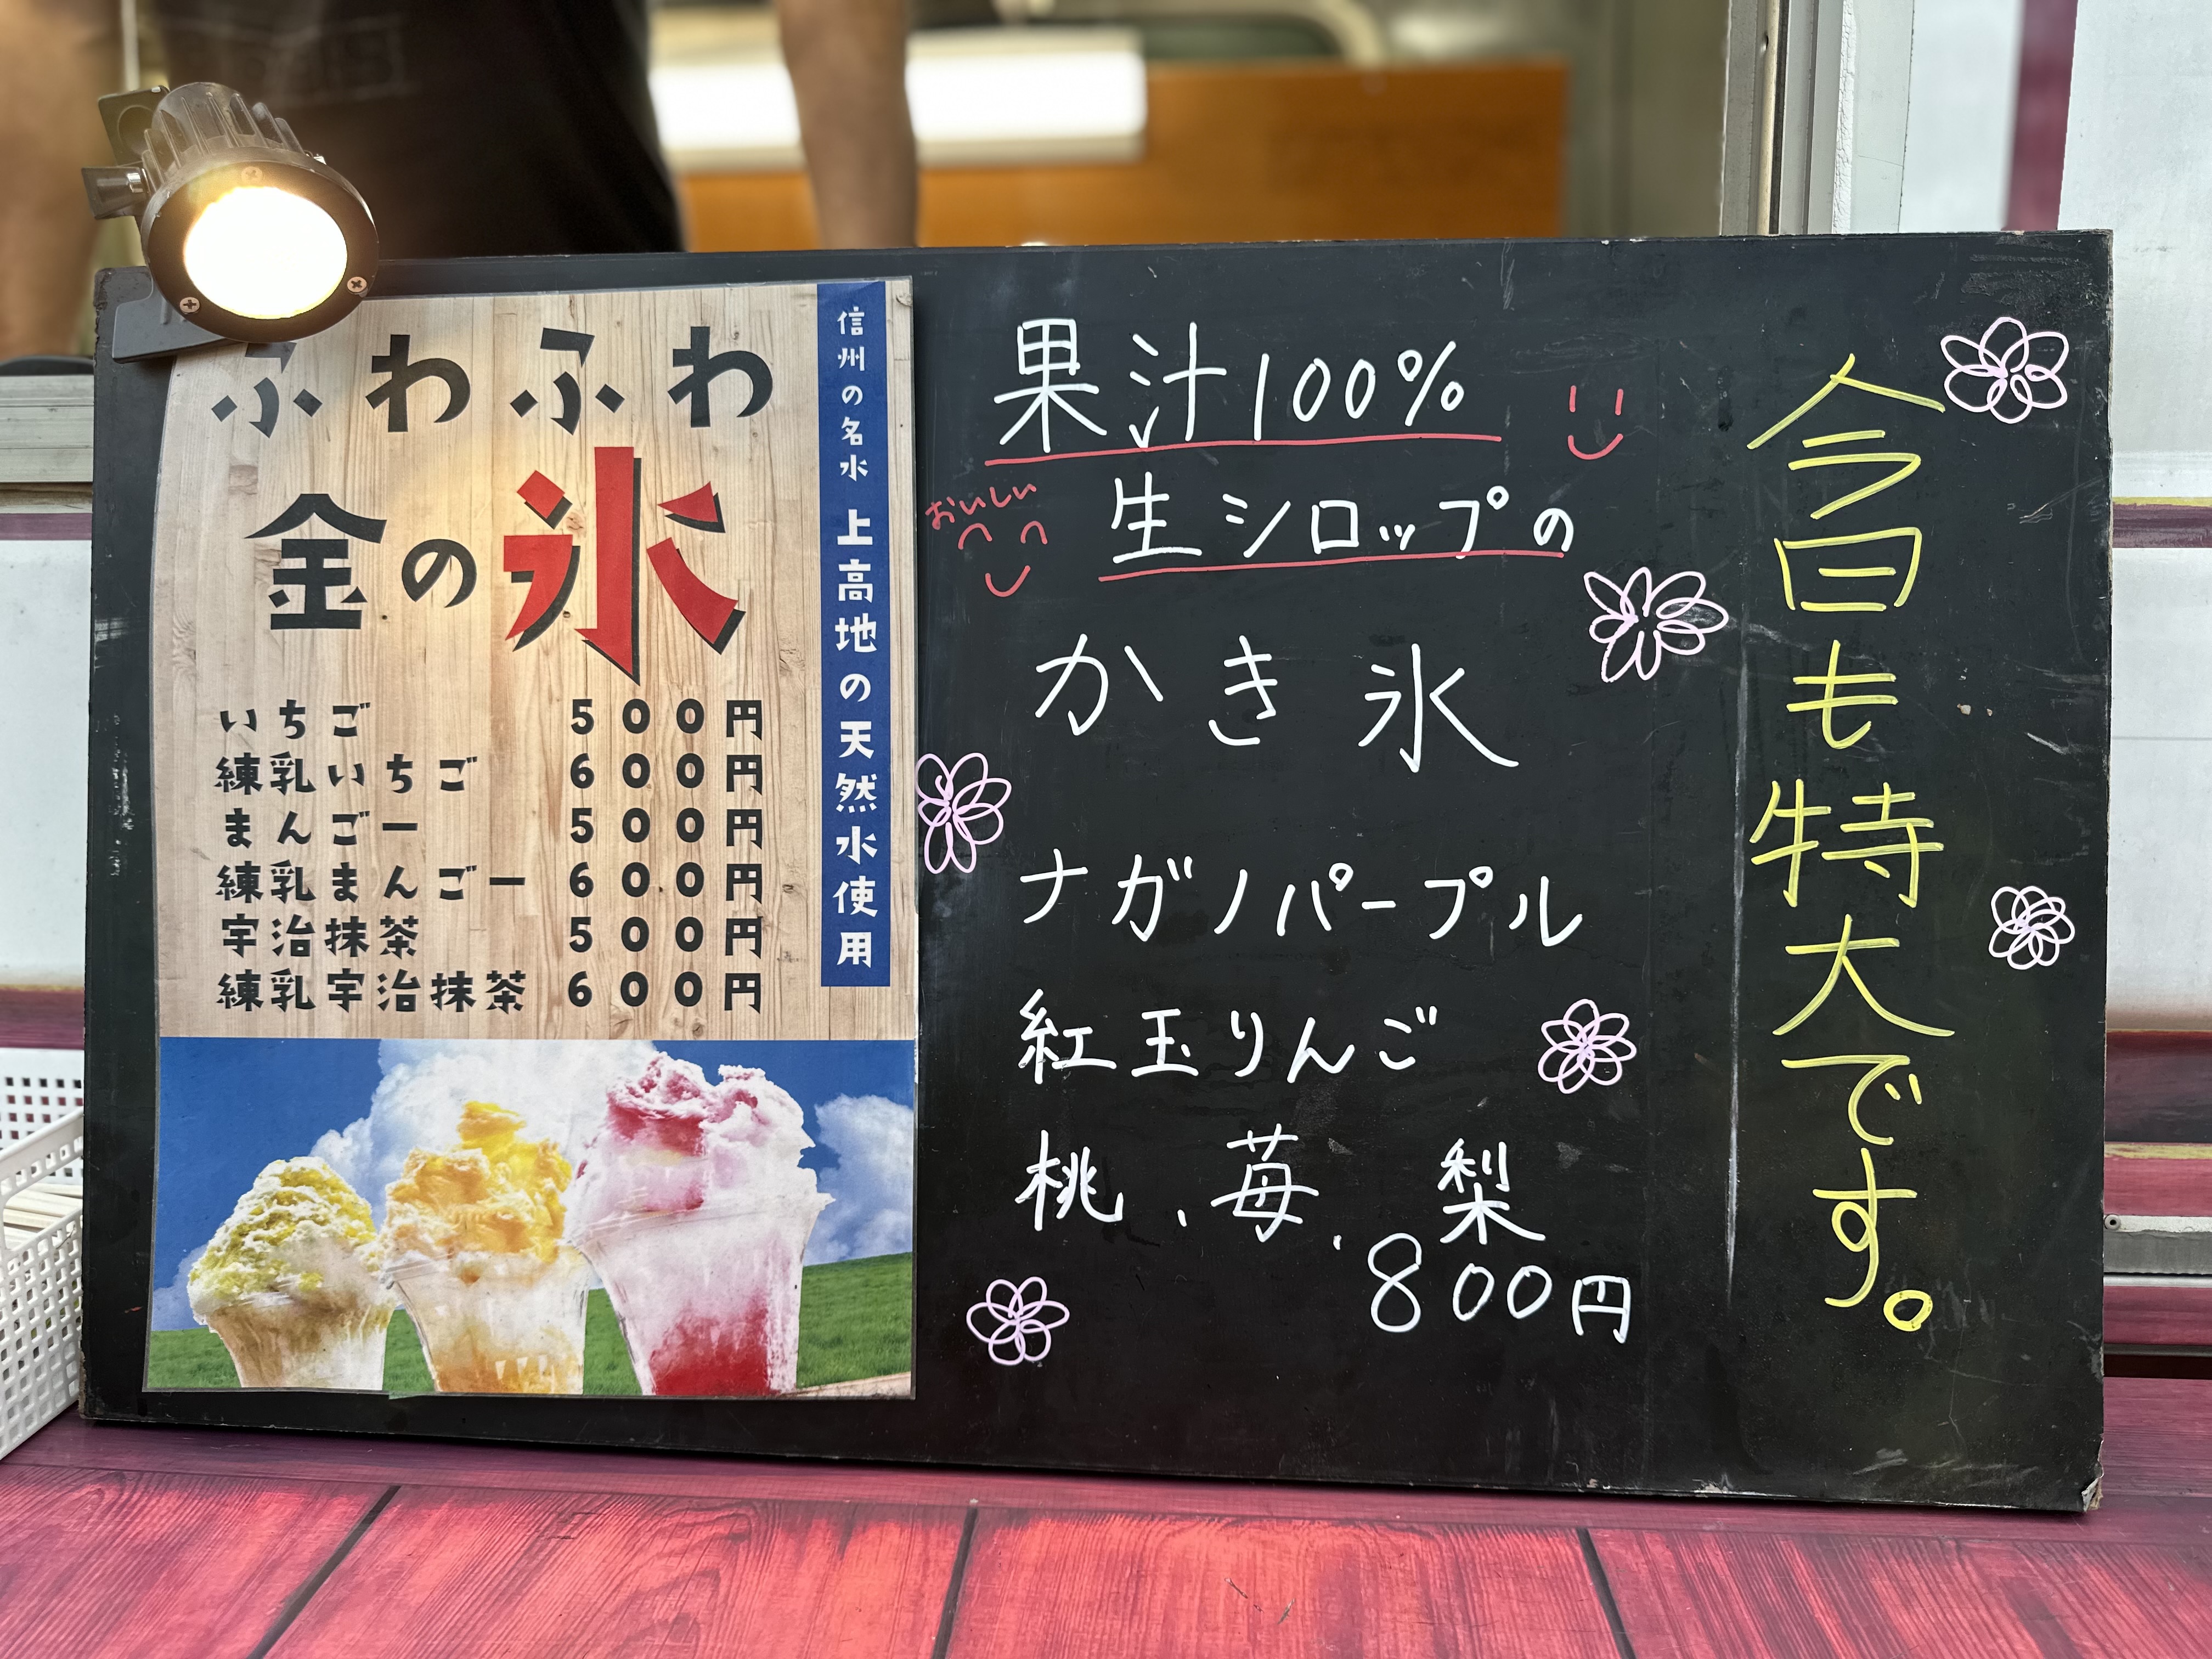 ふわふわ
金の氷
いちご 500円
練乳いちご 600円
まんごー 500円
練乳まんごー 600円
宇治抹茶 500円
練乳宇治抹茶 600円
信州の名水 上高地の天然水使用
果汁100%
おいしい
生シロップの
かき氷
ナガノパープル
紅玉りんご
桃、苺、梨
800円
今日も特大です。